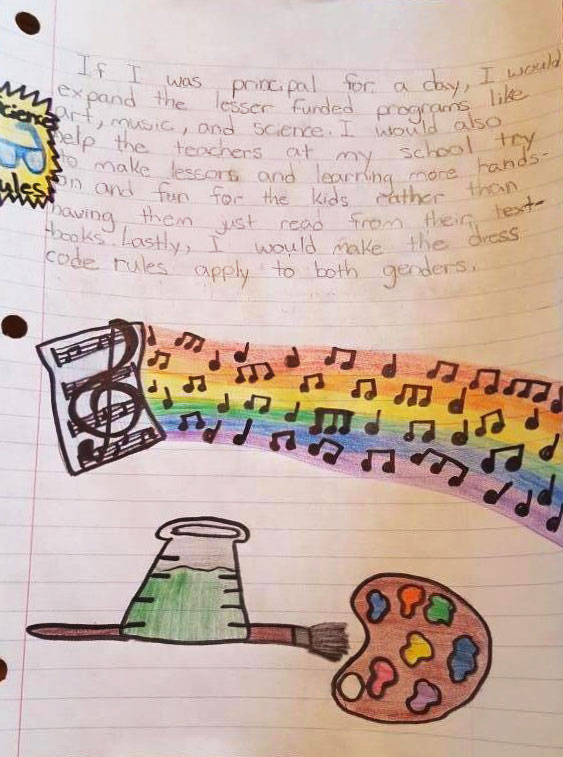 If I was principal for a day, I would
expand the lesser funded programs like
art, music, and science. I would also
help the teachers at my school try
to make lessons and learning more hands-
on and fun for the kids rather than
having them just read from their text-
books. Lastly, I would make the dress
code rules apply to both genders.
Science
Rules